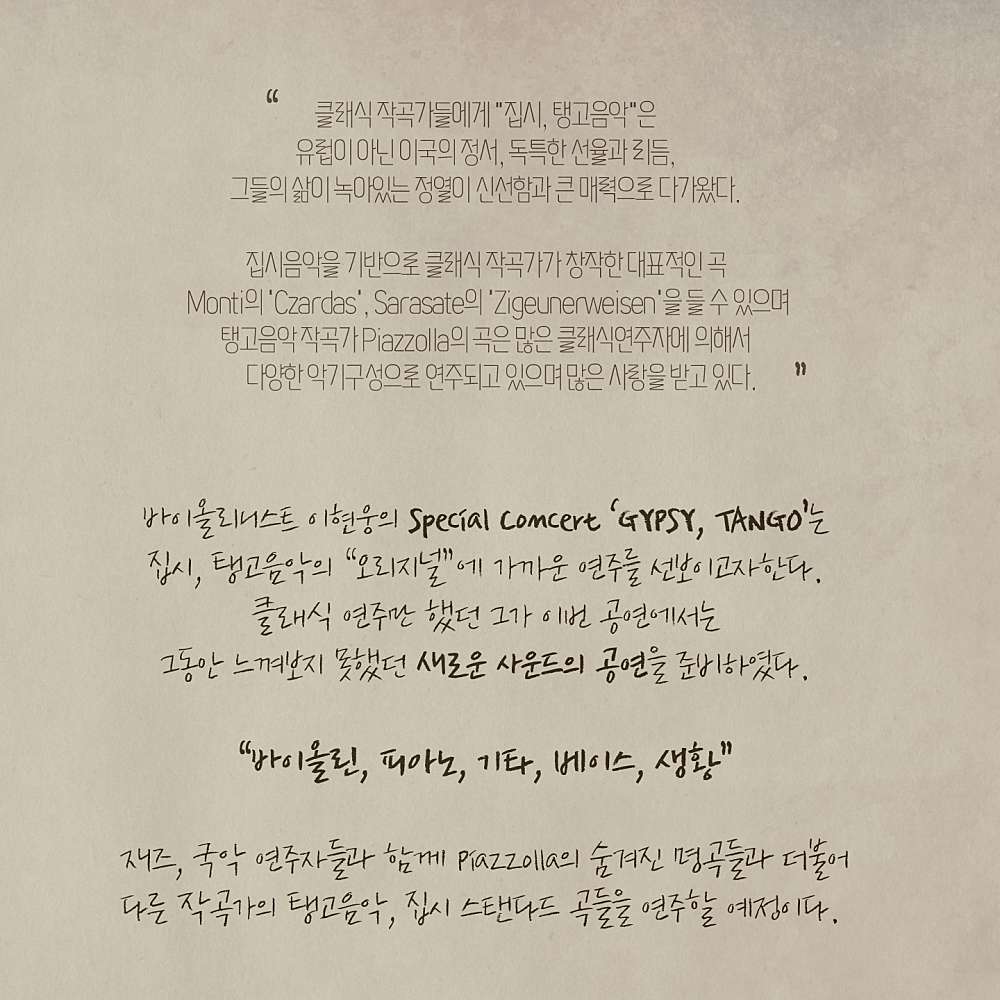 “ 클래식 작곡가들에게 "집시, 탱고음악"은
유럽이 아닌 이국의 정서, 독특한 선율과 리듬,
그들의 삶이 녹아있는 정열이 신선함과 큰 매력으로 다가왔다.
집시음악을 기반으로 클래식 작곡가가 창작한 대표적인 곡
Monti의 'Czardas', Sarasate의 'Zigeunerweisen'을 들 수 있으며
탱고음악 작곡가 Piazzolla의 곡은 많은 클래식연주자에 의해서
다양한 악기구성으로 연주되고 있으며 많은 사랑을 받고 있다. ”
바이올리니스트 이현웅의 Special Comcert ‘GYPSY, TANGO’는
집시, 탱고음악의 “오리지널”에 가까운 연주를 선보이고자한다.
클래식 연주만 했던 그가 이번 공연에서는
그동안 느껴보지 못했던 새로운 사운드의 공연을 준비하였다.
“바이올린, 피아노, 기타, 베이스, 생황”
재즈, 국악 연주자들과 함께 Piazzolla의 숨겨진 명곡들과 더불어
다른 작곡가의 탱고음악, 집시 스탠다드 곡들을 연주할 예정이다.